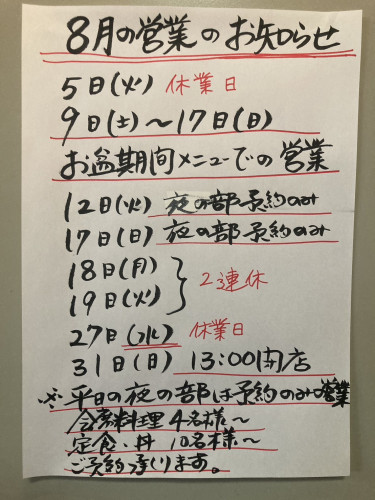 8月の営業のお知らせ
5日(火) 休業日
9日(土)～17日(日)
お盆期間メニューでの営業
12日(火) 夜の部予約のみ
17日(日) 夜の部予約のみ
18日(月)
19日(火)
2連休
27日(水) 休業日
31日(日) 13:00閉店
※平日の夜の部は予約のみ営業
会席料理 4名様～
定食・丼 10名様～
ご予約承ります。